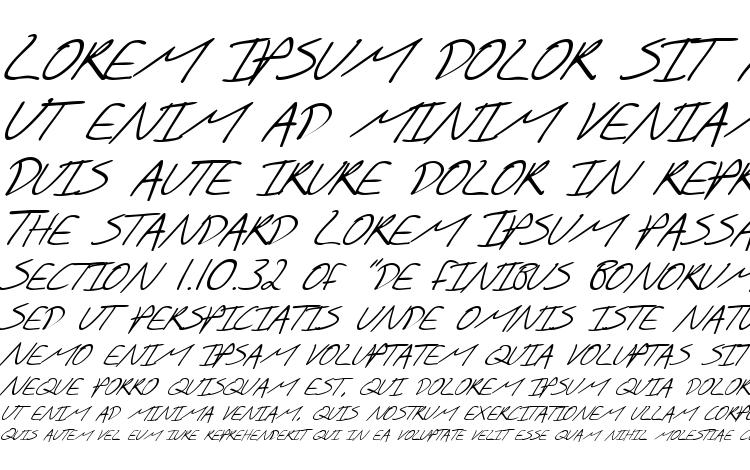 Lorem Ipsum dolor sit
ut enim ad minim veniam
Duis aute irure dolor in repr
The standard Lorem Ipsum passa
Section 1.10.32 of "de Finibus Bonorum
Sed ut perspiciatis unde omnis iste natu
Nemo enim ipsam voluptatem quia voluptas sit
Neque porro quisquam est, qui dolorem ipsum quia dolor
ut enim ad minima veniam, quis nostrum exercitationem ullam corp
Quis autem vel eum iure reprehenderit qui in ea voluptate velit esse quam nihil molestiae c